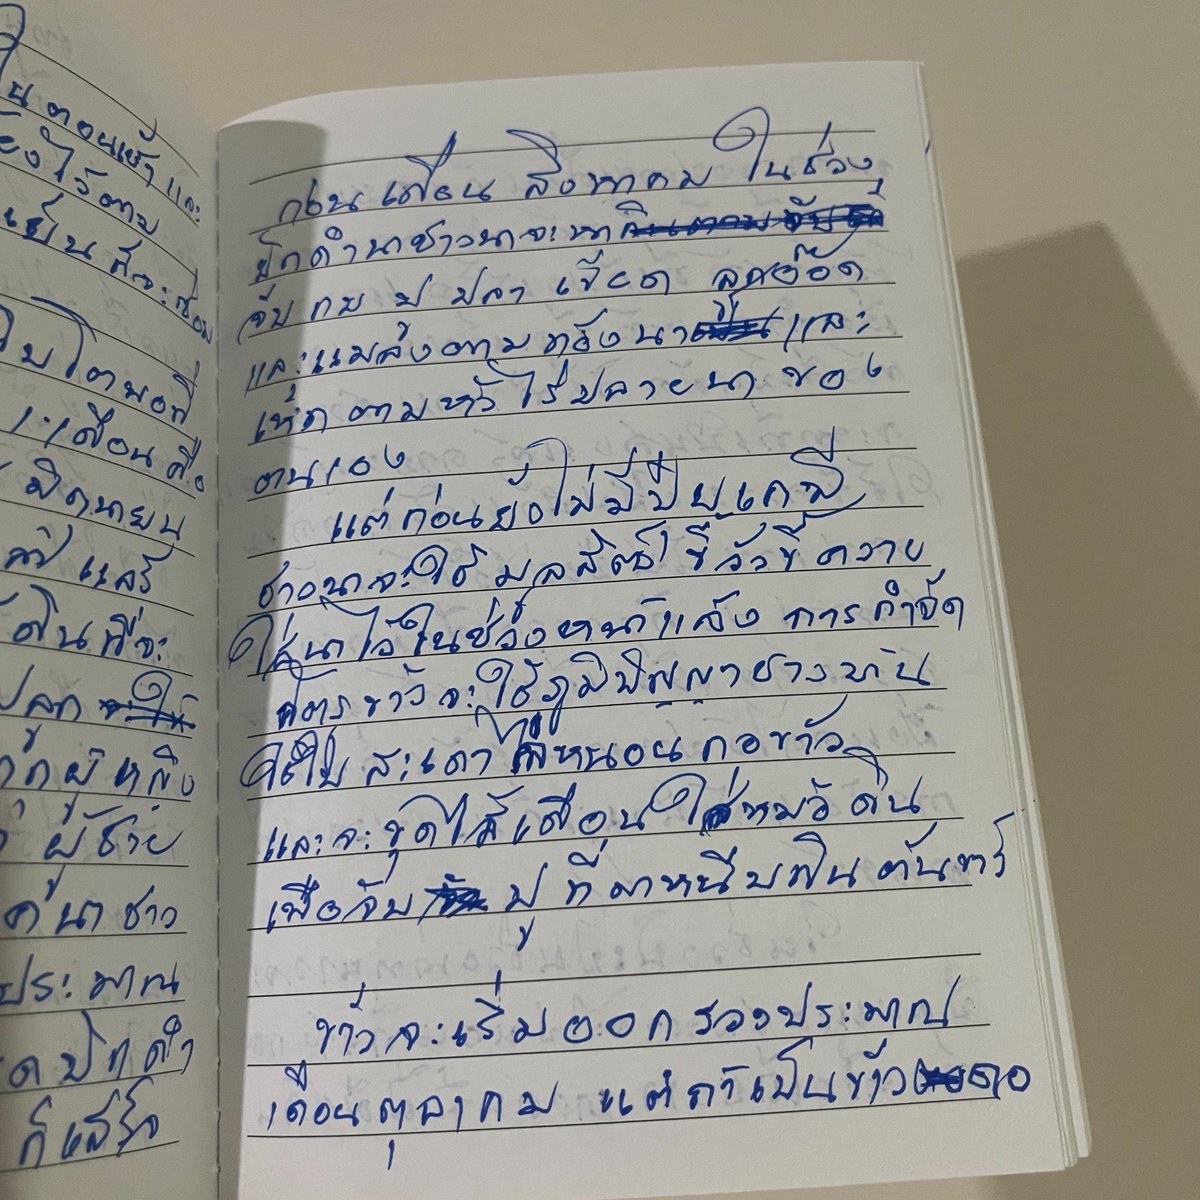 ในตอนเช้าและ
ไว้ตาม
เย็นก็จะ
ที่
เดือนคือ
มิถุนายน
แล้ว
ที่จะ
ปลูก
ผู้หญิง
ผู้ชาย
ชาว
ประมาณ
ปักดำ
ก็เสร็จ
ก่อนเดือน สิงหาคม ในช่วง
ปักดำนาชาวนาจะหา
จับ กบ ปู ปลา เขียด ลูกอ๊อด
และแมลงตามท้องนา และ
เห็ดตามหัวไร่ปลายนา ของ
ตนเอง
แต่ก่อนยังไม่มีปุ๋ยเคมี
ชาวนาจะใช้มูลสัตว์ ขี้วัวขี้ควาย
ใส่นาไว้ในช่วงหน้าแล้ง การกำจัด
ศัตรูข้าวจะใช้ภูมิปัญญาชาวบ้าน
ใช้ใบสะเดาไล่หนอนกอข้าว
และจะขุดไส้เดือนใส่หม้อดิน
เพื่อจับ ปูที่มาหนีบกินต้นข้าว
ข้าวจะเริ่มออกรวงประมาณ
เดือนตุลาคม แต่ถ้าเป็นข้าวดอ